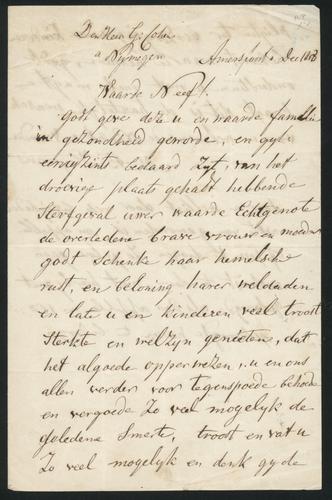 Den Heer G. Cohen
a Nymegen Amersfoort Dec 18
Waarde Neef!
godt geve deze u en waarde familie
in gezondheid geworde, en gyl.
enigzints bedaard zyt, van het
droevig plaats gehabt hebbende
Sterfgeval uwer waarde Echtgenote
de overledene brave vrouw en moeder
godt Schenke haar hemelsche
rust, en beloning harer weldaden
en late u en kinderen veel troost
Sterkte en welzyn genieten, dat
het algoede opperwezen, u en ons
allen verder voor tegenspoede behoede
en vergoede Zo veel mogelyk de
geledene Smerte, troost en vat u
Zo veel mogelyk en denk gyde